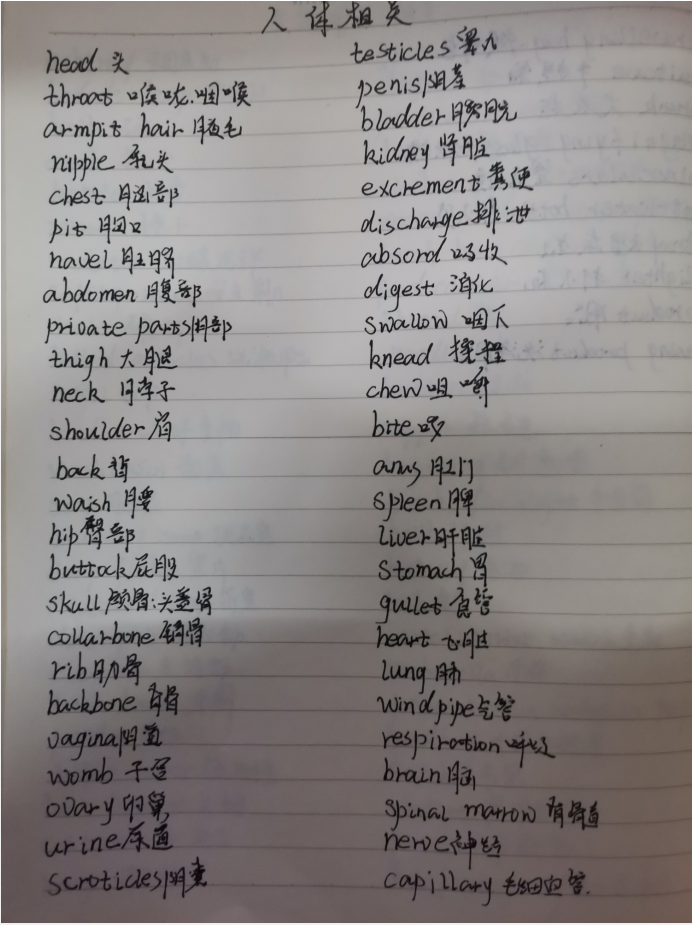 人体相关
head 头
throat 喉咙.咽喉
armpit hair 腋毛
nipple 乳头
chest 胸部
pit 胸口
navel 肚脐
abdomen 腹部
private parts 阴部
thigh 大腿
neck 脖子
shoulder 肩
back 背
waish 腰
hip 臀部
buttock 屁股
skull 颅骨:头盖骨
collarbone 锁骨
rib 肋骨
backbone 脊骨
vagina 阴道
womb 子宫
ovary 卵巢
urine 尿道
scroticles 阴囊
testicles 睾丸
penis 阴茎
bladder 膀胱
kidney 肾脏
excrement 粪便
discharge 排泄
absord 吸收
digest 消化
swallow 咽下
knead 揉捏
chew 咀嚼
bite 咬
anus 肛门
spleen 脾
liver 肝脏
stomach 胃
gullet 食管
heart 心脏
lung 肺
windpipe 气管
respiration 呼吸
brain 脑
spinal marrow 脊骨道
nerve 神经
capillary 毛细血管.